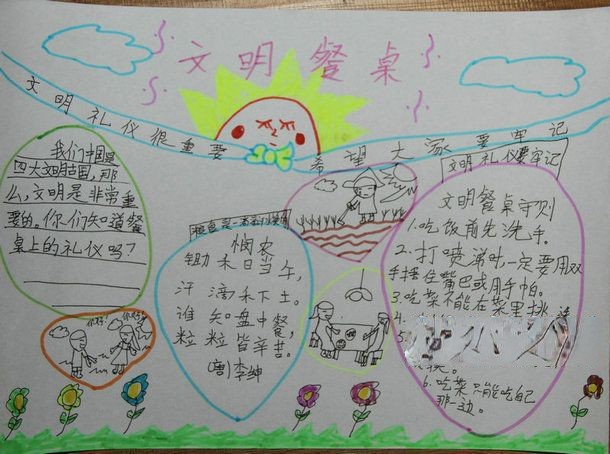 文明餐桌
文明礼仪很重要 希望大家要牢记
我们中国是
四大文明古国,那
么,文明是非常重
要的。你们知道餐
桌上的礼仪吗?
悯农
锄禾日当午,
汗滴禾下土。
谁知盘中餐,
粒粒皆辛苦。
唐李绅
文明礼仪要牢记
文明餐桌守则
1.吃饭前先洗手。
2.打喷涕时一定要用双
手捂住嘴巴或用手帕。
3.吃菜不能在菜里挑
4.
5.
6.吃菜只能吃自己
那一边。
你好!
你好!